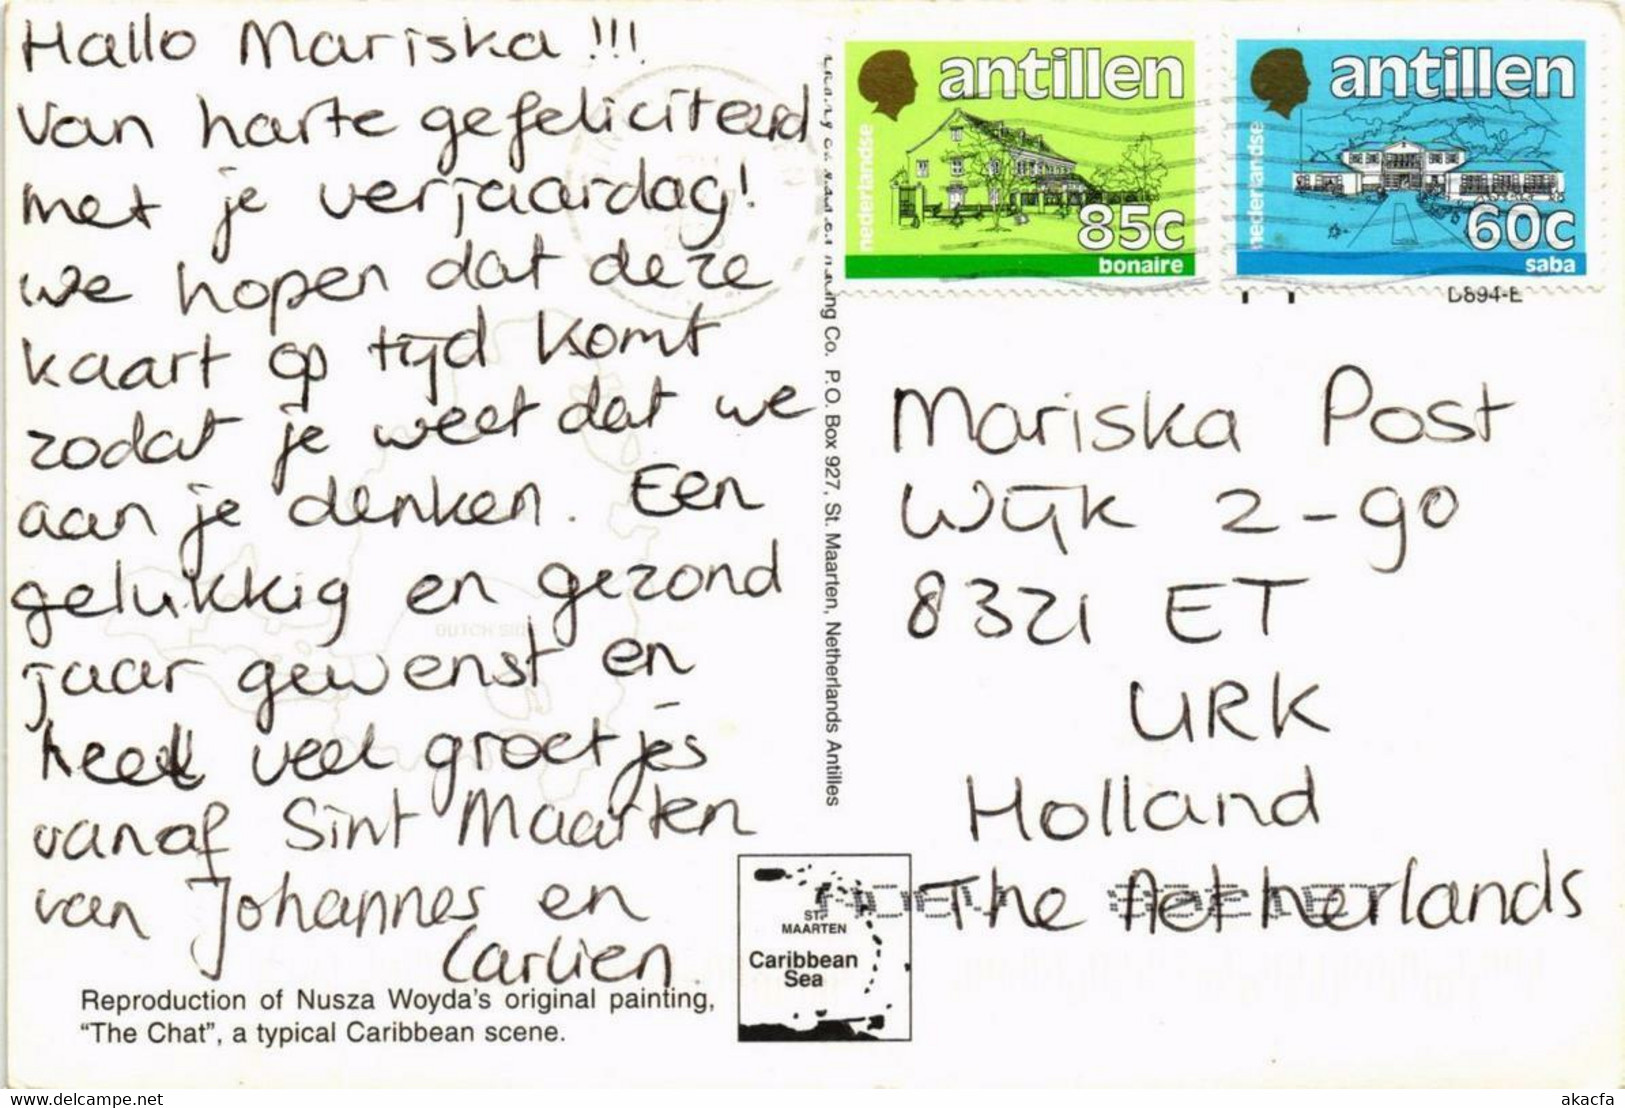 Hallo Mariska !!!
Van harte gefeliciteerd
met je verjaardag!
We hopen dat deze
kaart op tijd komt
zodat je weet dat we
aan je denken. Een
gelukkig en gezond
jaar gewenst en
heel veel groetjes
vanaf Sint Maarten
van Johannes en
Carlien.
Reproduction of Nusza Woyda's original painting,
“The Chat”, a typical Caribbean scene.
Co. P.O. Box 927, St. Maarten, Netherlands Antilles
nederlandse
antillen
85c
bonaire
nederlandse
antillen
60c
saba
Mariska Post
Wijk 2-90
8321 ET
URK
Holland
The Netherlands
DUTCH SIDE
ST.
MAARTEN
Caribbean
Sea
www.delcampe.net
akacfa